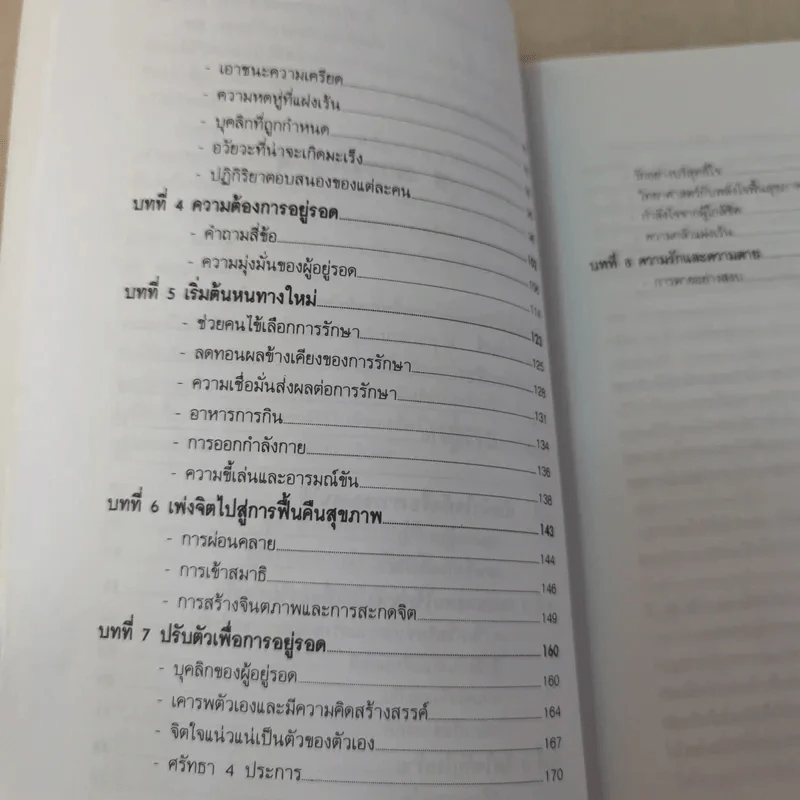 - เอาชนะความเครียด
- ความหดหู่ที่แฝงเร้น
- บุคลิกที่ถูกกำหนด
- อวัยวะที่น่าจะเกิดมะเร็ง
- ปฏิกิริยาตอบสนองของแต่ละคน
บทที่ 4 ความต้องการอยู่รอด
- คำถามสี่ข้อ
- ความมุ่งมั่นของผู้อยู่รอด
บทที่ 5 เริ่มต้นหนทางใหม่
- ช่วยคนไข้เลือกการรักษา 123
- ลดทอนผลข้างเคียงของการรักษา 125
- ความเชื่อมั่นส่งผลต่อการรักษา 128
- อาหารการกิน 131
- การออกกำลังกาย 134
- ความขี้เล่นและอารมณ์ขัน 138
บทที่ 6 เพ่งจิตไปสู่การฟื้นคืนสุขภาพ 143
- การผ่อนคลาย 144
- การเข้าสมาธิ 146
- การสร้างจินตภาพและการสะกดจิต 149
บทที่ 7 ปรับตัวเพื่อการอยู่รอด 160
- บุคลิกของผู้อยู่รอด 160
- เคารพตัวเองและมีความคิดสร้างสรรค์ 164
- จิตใจแน่วแน่เป็นตัวของตัวเอง 167
- ศรัทธา 4 ประการ 170
รักอย่างบริสุทธิ์ใจ
วิทยาศาสตร์กับพลังใจฟื้นสุขภาพ
กำลังใจจากผู้ใกล้ชิด
ความกลัวแฝงเร้น
บทที่ 8 ความรักและความตาย
- การตายอย่างสงบ